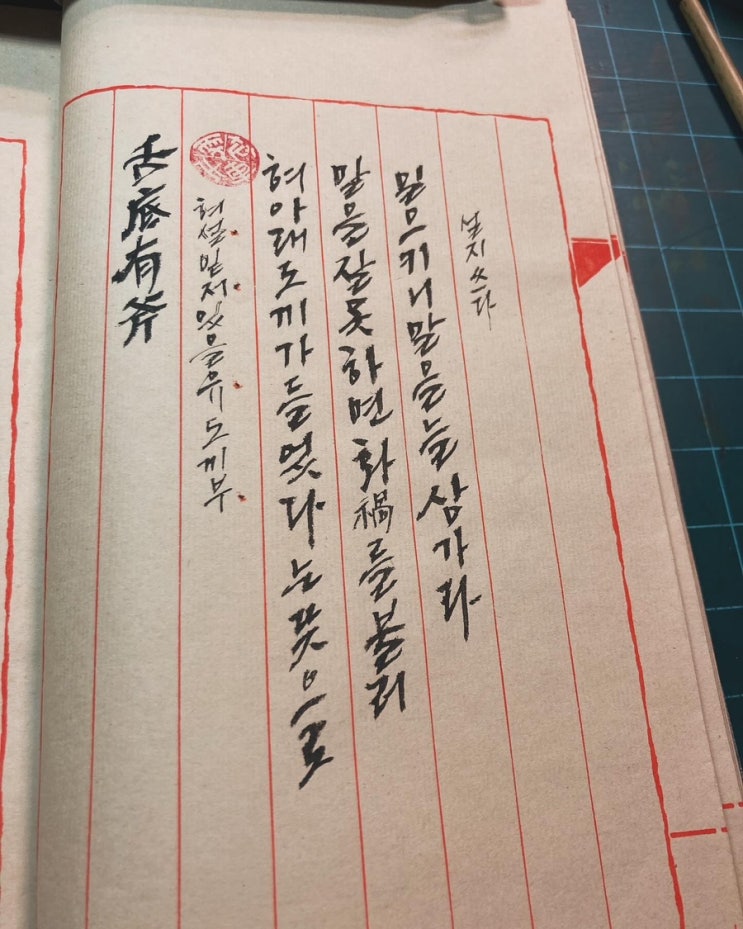 舌底有斧
혀설밑저있을유도끼부
혀아래도끼가들었다는뜻으로
말을잘못하면화禍를불러
일으키니말을늘삼가라
설지쓰다